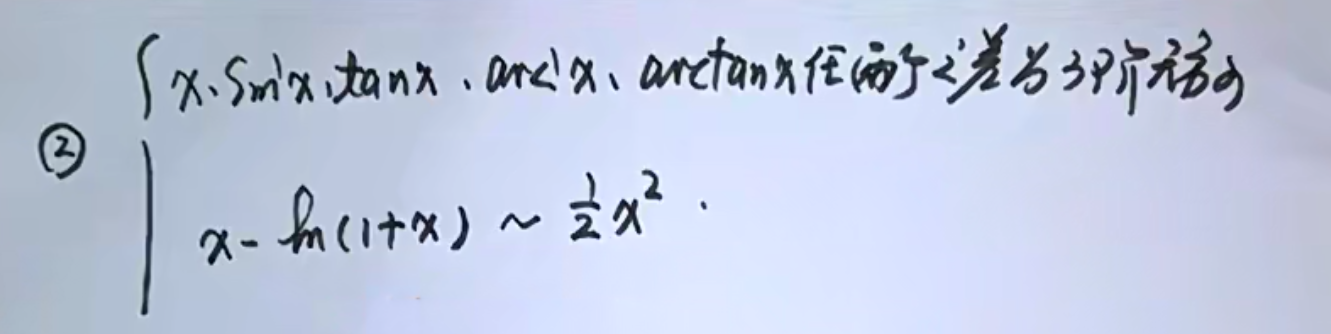 x、sin x、tanx、arc x、arctanx任两个之差为3阶无穷小
② {
x - ln(1+x) ~ 1/2 x².